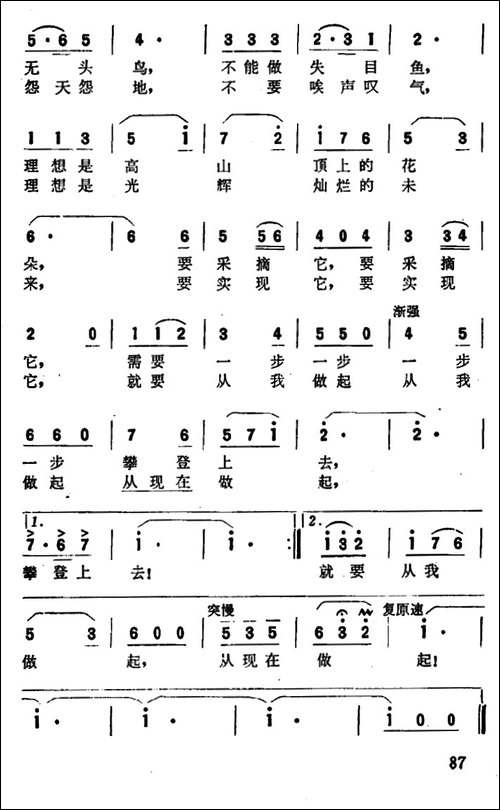 5·6 5 | 4· | 3 3 3 | 2·3 1 | 2· |
无头鸟，不能做失目鱼，
怨天怨地，不要唉声叹气，
1 1 3 | 5 i | 7 2 | i 7 6 | 5 3 |
理想是高山顶上的花
理想是光辉灿烂的未
6· | 6 6 | 5 5 6 | 4 0 4 | 3 3 4 |
朵，要采摘它，要采摘
来，要实现它，要实现
渐强
2 0 | 1 1 2 | 3 4 | 5 5 0 | 4 5 |
它，需要一步一步一步
它，就要从我做起从我
6 6 0 | 7 6 | 5 7 i | 2· | 2· |
一步攀登上去，
做起从现在做起，
1. 2.
7·6 7 | i· | i· :‖ i 3 2 | i 7 6 |
攀登上去！就要从我
突慢 复原速
5 3 | 6 0 0 | 5 3 5 | 6 3 2 | i· |
做起，从现在做起！
i· | i· | i· | i· | i 0 0 ‖
87